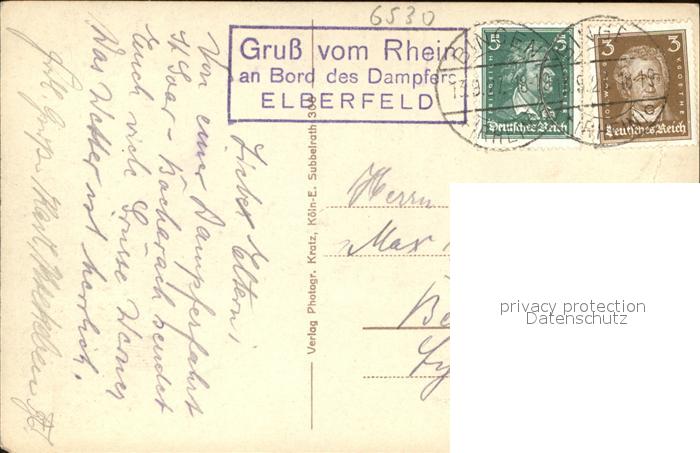 6530
Gruß vom Rhein
an Bord des Dampfers
ELBERFELD
BINGEN
5 5
Deutsches Reich
3 3
J.W.V. GOETHE
Deutsches Reich
Liebe Eltern,
Von einer Dampferfahrt
St Goar - Bacharach sendet
Euch viele Grüsse Werner
Das Wetter ist herrlich.
Verlag Photogr. Kratz, Köln-E. Subbelrath 308
Herrn
Max
privacy protection
Datenschutz